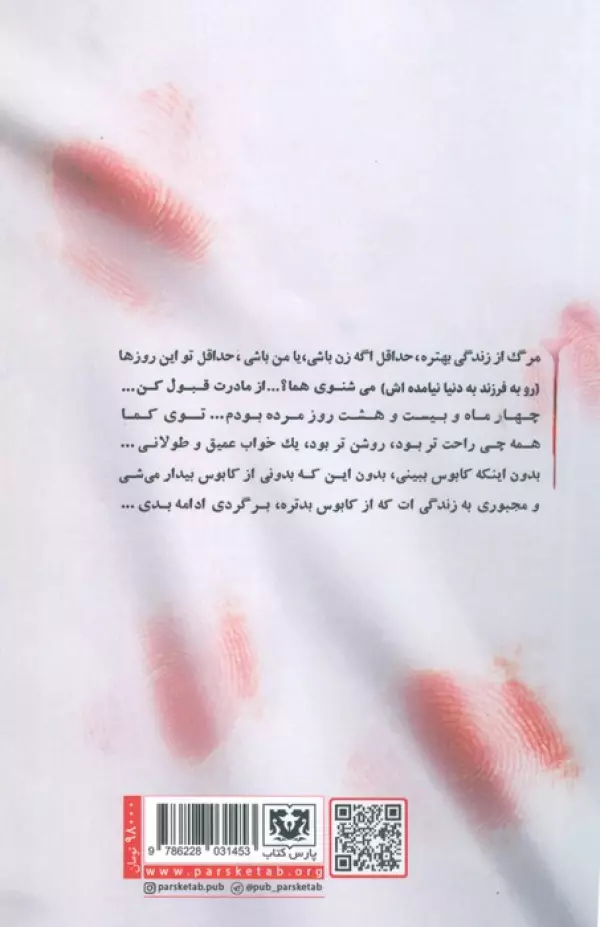 مرگ از زندگی بهتره، حداقل اگه زن باشی، یا من باشی ، حداقل تو این روزها
(رو به فرزند به دنیا نیامده اش) می شنوی هما؟... از مادرت قبول کن...
چهار ماه و بیست و هشت روز مرده بودم... توی کما
همه چی راحت تر بود، روشن تر بود، یك خواب عمیق و طولانی ...
بدون اینکه کابوس ببینی، بدون این که بدونی از کابوس بیدار می‌شی
و مجبوری به زندگی ات که از کابوس بدتره، برگردی ادامه بدی ...
۹۸۰۰۰ تومان
پارس کتاب
9 786228 031453
www.parsketab.org
parsketab.pub @pub_parsketab